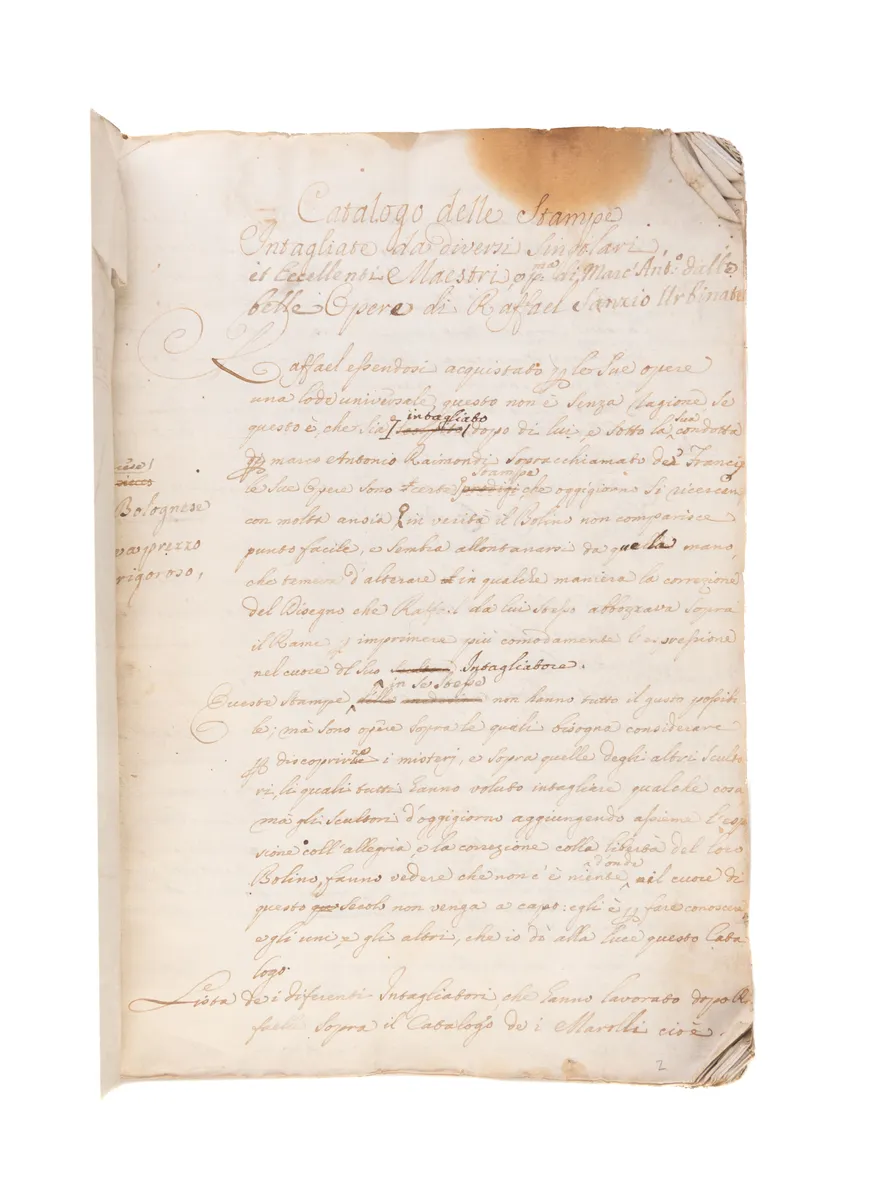 Catalogo delle Stampe
Intagliate da diversi Singolari,
et Eccellenti Maestri, di Marc' Ant.º dalle
belle Opere di Raffael Sanzio Urbinate
Raffael essendosi acquistato le Sue opere
una lode universale, questo non è Senza ragione, se
questo è, che Sia intagliato dopo di lui, e sotto la sua condotta
marco Antonio Raimondi sopracchiamato de Franci
le Sue Opere sono Stampe che oggigiorno Si ricercan
con molta ansia in verità il Bolino non comparisce
punto facile, e Sembra allontanarsi da quella mano,
che teme d'alterare in qualche maniera la correzione
del Disegno che Raffael da lui Stesso abbozzava sopra
il Rame imprimere più comodamente l'espressione
nel cuore del Suo Intagliatore.
Queste Stampe in Se Stesse non hanno tutto il gusto possibi
le; mà sono opere sopra le quali bisogna considerare
discoprirne i misterj, e sopra quelle degli altri Sculto
ri, li quali tutti hanno voluto intagliare qualche cosa
mà gli Scultori d'oggigiorno aggiungendo assieme l'espr
sione coll'allegria, e la correzione colla libertà del loro
Bolino, fanno vedere che non c'è niente, donde il cuore di
questo Secolo non venga a capo: egli è fare conoscere
e gli uni, e gli altri, che io dò alla luce questo Cata
logo.
Lista de i diferenti Intagliatori, che hanno lavorato dopo Ra
faelle sopra il Catalogo de i Marolli cioè.
Bolognese
a prezzo
rigoroso,
2